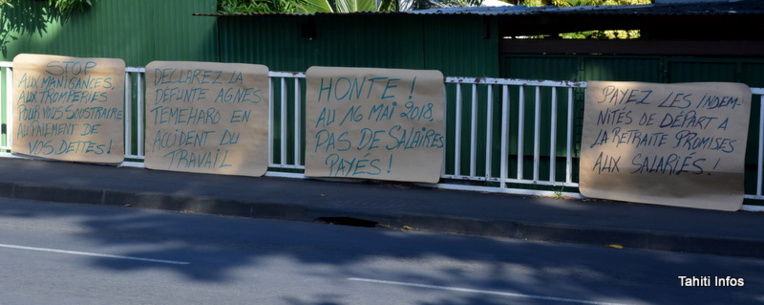 STOP
AUX MANIGANCES,
AUX TROMPERIES
POUR VOUS SOUSTRAIRE
AU PAIEMENT DE
VOS DETTES !
DECLAREZ LA
DÉFUNTE AGNES
TEMEHARO EN
ACCIDENT DU
TRAVAIL
HONTE !
AU 16 MAI 2018,
PAS DE SALAIRES
PAYÉS !
PAYEZ LES INDEM-
NITÉS DE DÉPART A
LA RETRAITE PROMISES
AUX SALARIÉS !
Tahiti Infos